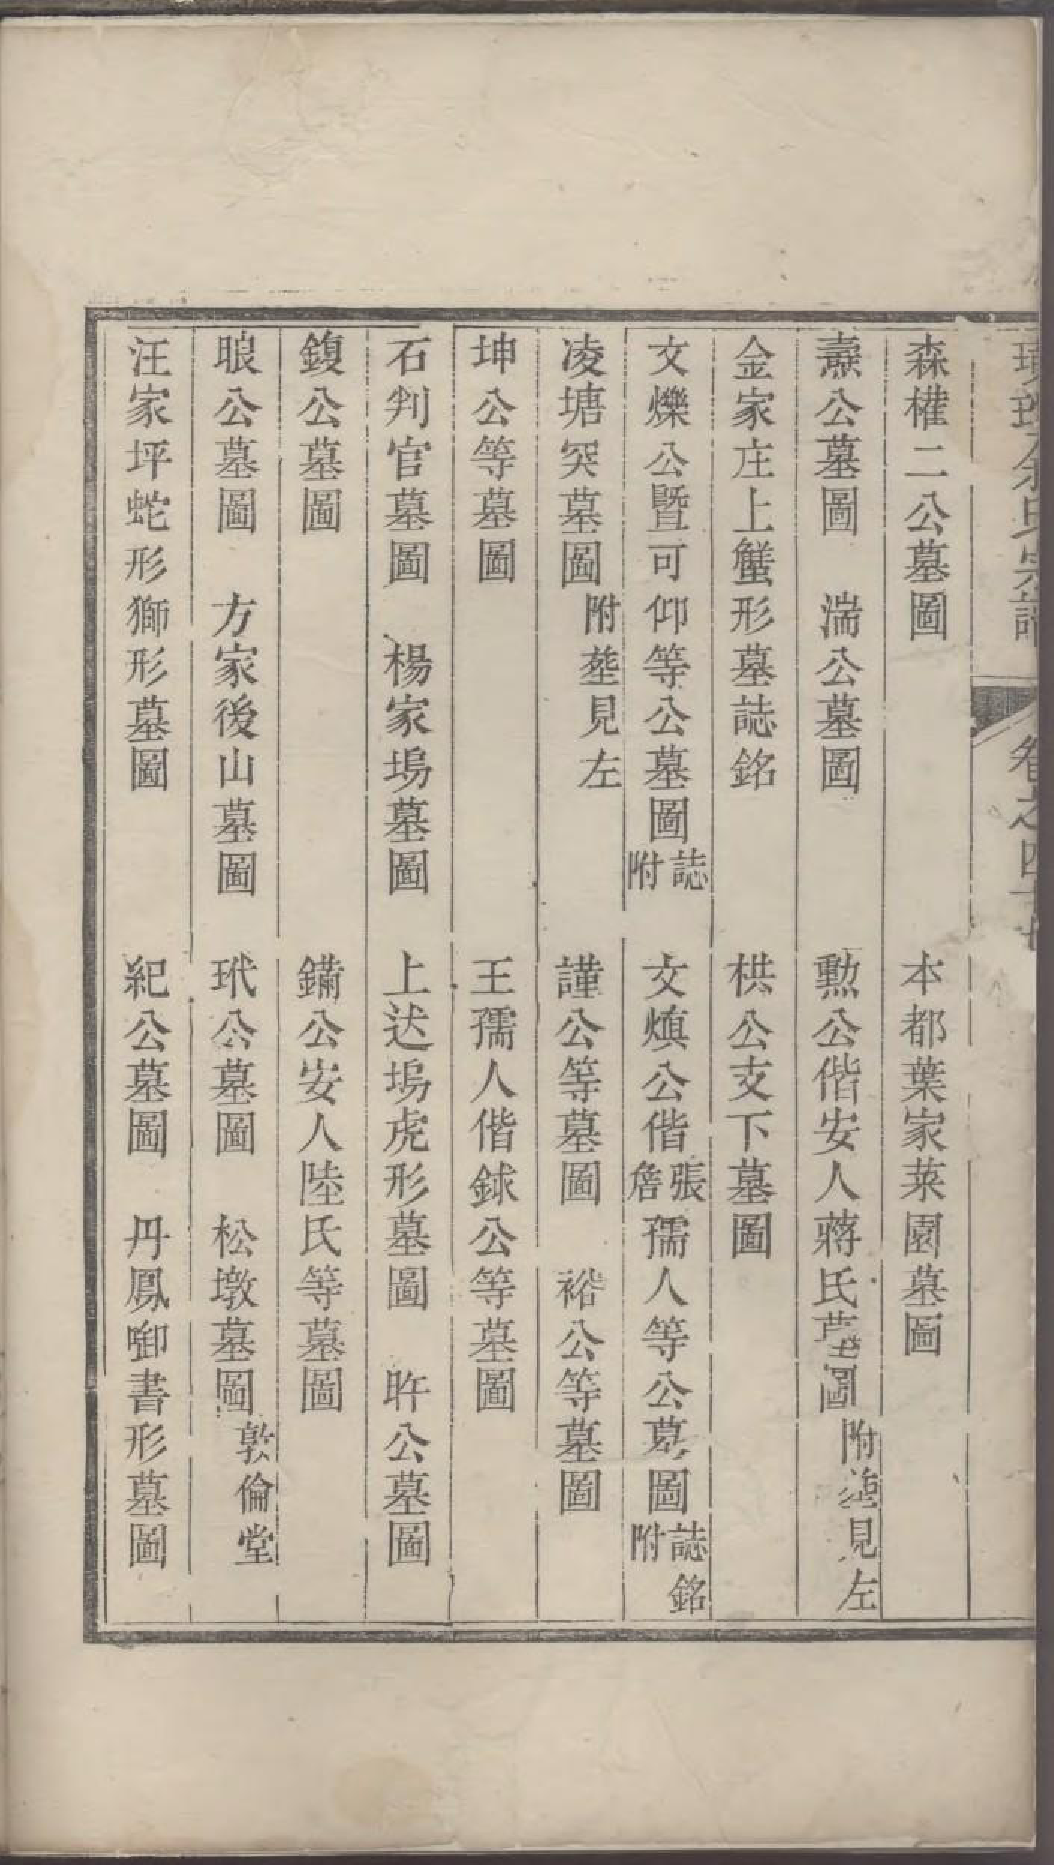 余氏宗譜 卷之四十七
森權二公墓圖 本都葉家菜園墓圖
燾公墓圖 湍公墓圖 勲公偕安人蔣氏墓圖附塟見左
金家庄上蟹形墓誌銘 栱公支下墓圖
文爍公暨可仰等公墓圖誌附 文熉公偕張詹孺人等公墓圖誌銘附
凌塘突墓圖附塟見左 謹公等墓圖 裕公等墓圖
坤公等墓圖 王孺人偕銶公等墓圖
石判官墓圖 楊家塢墓圖 上迖塢虎形墓圖 旿公墓圖
鍑公墓圖 鏞公安人陸氏等墓圖
㫰公墓圖 方家後山墓圖 玳公墓圖 松墩墓圖敦倫堂
汪家坪蛇形獅形墓圖 紀公墓圖 丹鳳啣書形墓圖